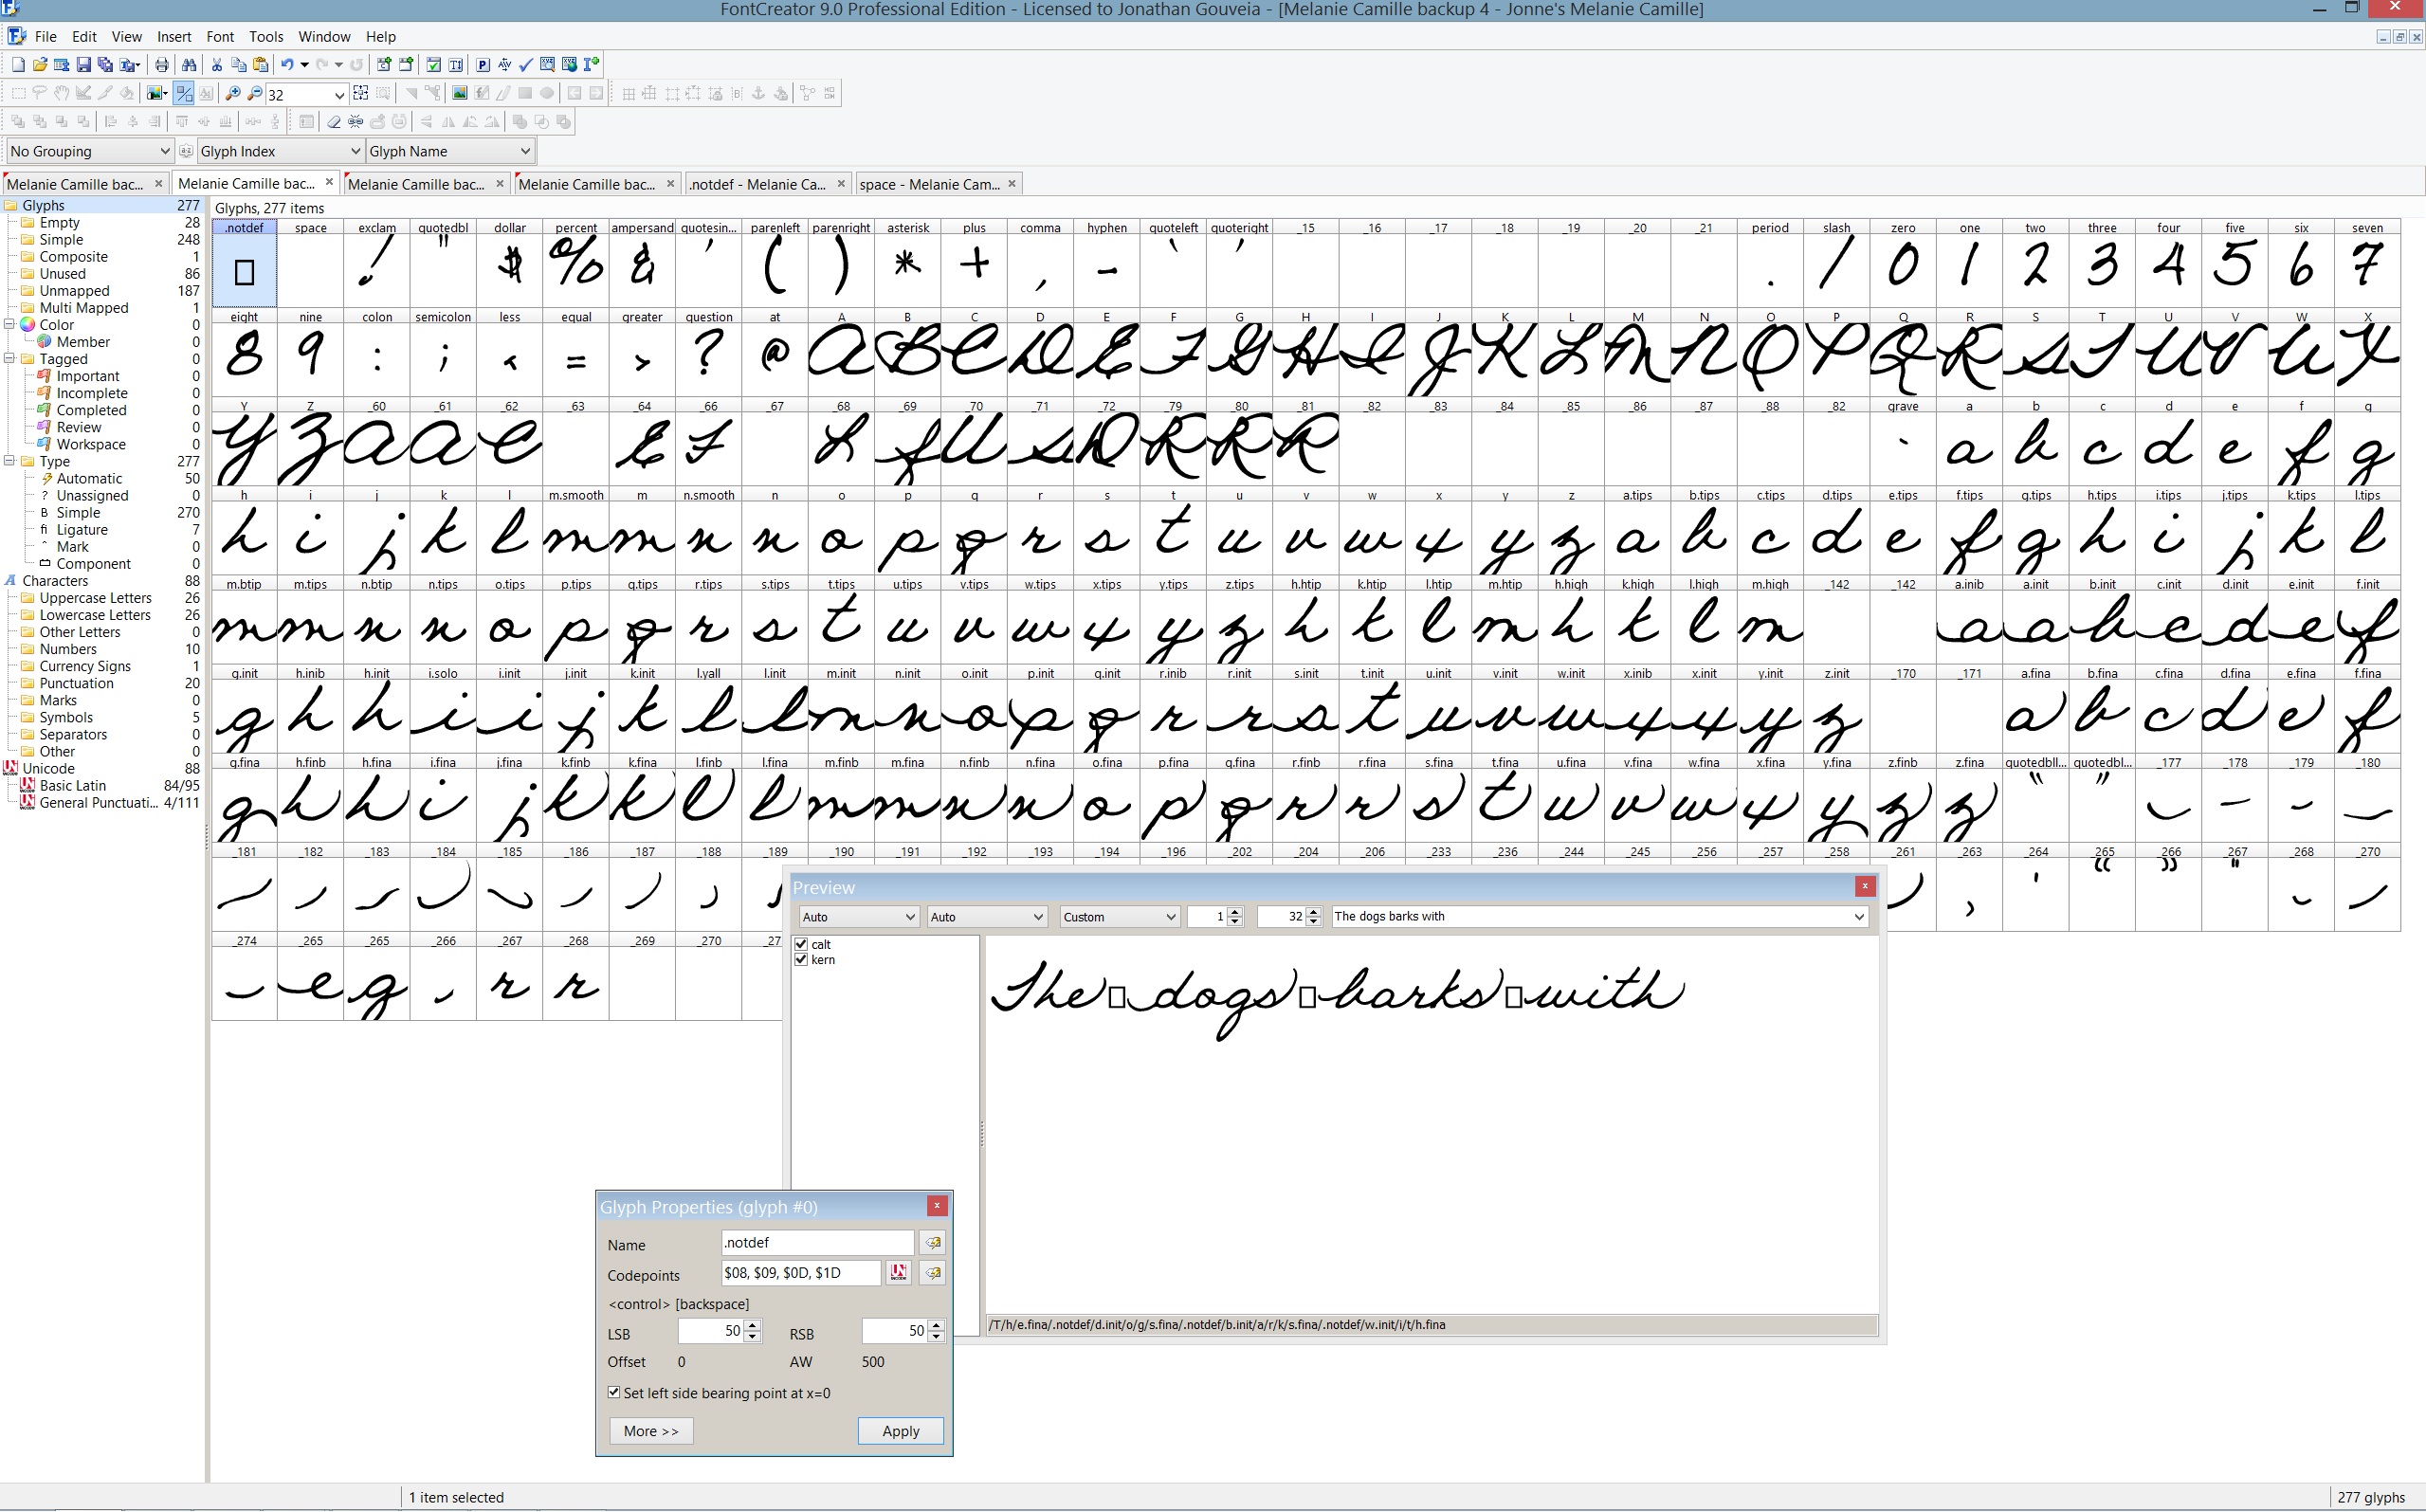 FontCreator 9.0 Professional Edition - Licensed to Jonathan Gouveia - [Melanie Camille backup 4 - Jonne's Melanie Camille]
File Edit View Insert Font Tools Window Help
32
No Grouping Glyph Index Glyph Name
Melanie Camille bac... Melanie Camille bac... Melanie Camille bac... Melanie Camille bac... .notdef - Melanie Ca... space - Melanie Cam...
Glyphs 277
Empty 28
Simple 248
Composite 1
Unused 86
Unmapped 187
Multi Mapped 1
Color 0
Member 0
Tagged 0
Important 0
Incomplete 0
Completed 0
Review 0
Workspace 0
Type 277
Automatic 50
? Unassigned 0
B Simple 270
fi Ligature 7
Mark 0
Component 0
Characters 88
Uppercase Letters 26
Lowercase Letters 26
Other Letters 0
Numbers 10
Currency Signs 1
Punctuation 20
Marks 0
Symbols 5
Separators 0
Other 0
Unicode 88
Basic Latin 84/95
General Punctuati... 4/111
Glyphs, 277 items
.notdef space exclam quotedbl dollar percent ampersand quotesin... parenleft parenright asterisk plus comma hyphen quoteleft quoteright _15 _16 _17 _18 _19 _20 _21 period slash zero one two three four five six seven
! " $ % & ' ( ) * + , - ‘ ’ . / 0 1 2 3 4 5 6 7
eight nine colon semicolon less equal greater question at A B C D E F G H I J K L M N O P Q R S T U V W X
8 9 : ; < = > ? @ A B C D E F G H I J K L M N O P Q R S T U V W X
Y Z _60 _61 _62 _63 _64 _66 _67 _68 _69 _70 _71 _72 _79 _80 _81 _82 _83 _84 _85 _86 _87 _88 _82 grave a b c d e f g
h i j k l m.smooth m n.smooth n o p q r s t u v w x y z a.tips b.tips c.tips d.tips e.tips f.tips g.tips h.tips i.tips j.tips k.tips l.tips
m.btip m.tips n.btip n.tips o.tips p.tips q.tips r.tips s.tips t.tips u.tips v.tips w.tips x.tips y.tips z.tips h.htip k.htip l.htip m.htip h.high k.high l.high m.high _142 _142 a.inib a.init b.init c.init d.init e.init f.init
g.init h.inib h.init i.solo i.init j.init k.init l.yall l.init m.init n.init o.init p.init q.init r.inib r.init s.init t.init u.init v.init w.init x.inib x.init y.init z.init _170 _171 a.fina b.fina c.fina d.fina e.fina f.fina
g.fina h.finb h.fina i.fina j.fina k.finb k.fina l.finb l.fina m.finb m.fina n.finb n.fina o.fina p.fina q.fina r.finb r.fina s.fina t.fina u.fina v.fina w.fina x.fina y.fina z.finb z.fina quotedbll... quotedbl... _177 _178 _179 _180
_181 _182 _183 _184 _185 _186 _187 _188 _189 _190 _191 _192 _193 _194 _196 _202 _204 _206 _233 _236 _244 _245 _256 _257 _258 _261 _263 _264 _265 _266 _267 _268 _270
_274 _265 _265 _266 _267 _268 _269 _270
Preview
Auto Auto Custom 1 32 The dogs barks with
calt
kern
The▯dogs▯barks▯with
/T/h/e.fina/.notdef/d.init/o/g/s.fina/.notdef/b.init/a/r/k/s.fina/.notdef/w.init/i/t/h.fina
Glyph Properties (glyph #0)
Name .notdef
Codepoints $08, $09, $0D, $1D
<control> [backspace]
LSB 50 RSB 50
Offset 0 AW 500
Set left side bearing point at x=0
More >> Apply
1 item selected 277 glyphs